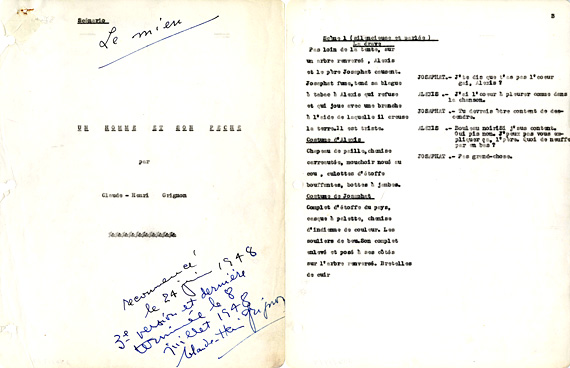 Scénario
Le mien
UN HOMME ET SON PECHE
par
Claude-Henri Grignon
recommencé
le 24 juin 1948
3e version et dernière
terminée le 8
juillet 1948
Claude-Henri Grignon
3
Scène 1 (silencieuse et parlée)
La drave
Pas loin de la tente, sur
un arbre renversé, Alexis
et le père Josaphat causent.
Josaphat fume, tend sa blague
à tabac à Alexis qui refuse
et qui joue avec une branche
à l'aide de laquelle il creuse
la terre. Il est triste.
Costume d'Alexis
Chapeau de paille, chemise
carreautée, mouchoir noué au
cou, culottes d'étoffe
bouffantes, bottes à jambes.
Costume de Josaphat
Complet d'étoffe du pays,
casque à palette, chemise
d'indienne de couleur. Les
souliers de boeuf. Son complet
enlevé et posé à ses côtés
sur l'arbre renversé. Bretelles
de cuir
JOSAPHAT.- J'te dis que t'as pas l'coeur
gai, Alexis?
ALEXIS .- J'ai l'coeur à pleurer comme dans
la chanson.
JOSAPHAT.- Tu devrais être content de des-
cendre.
ALEXIS .- j'sus content.
Oui pis non. J'peux pas vous ex-
pliquer ça, l'père. Quoi de neuf
par en bas?
JOSAPHAT.- Pas grand-chose.